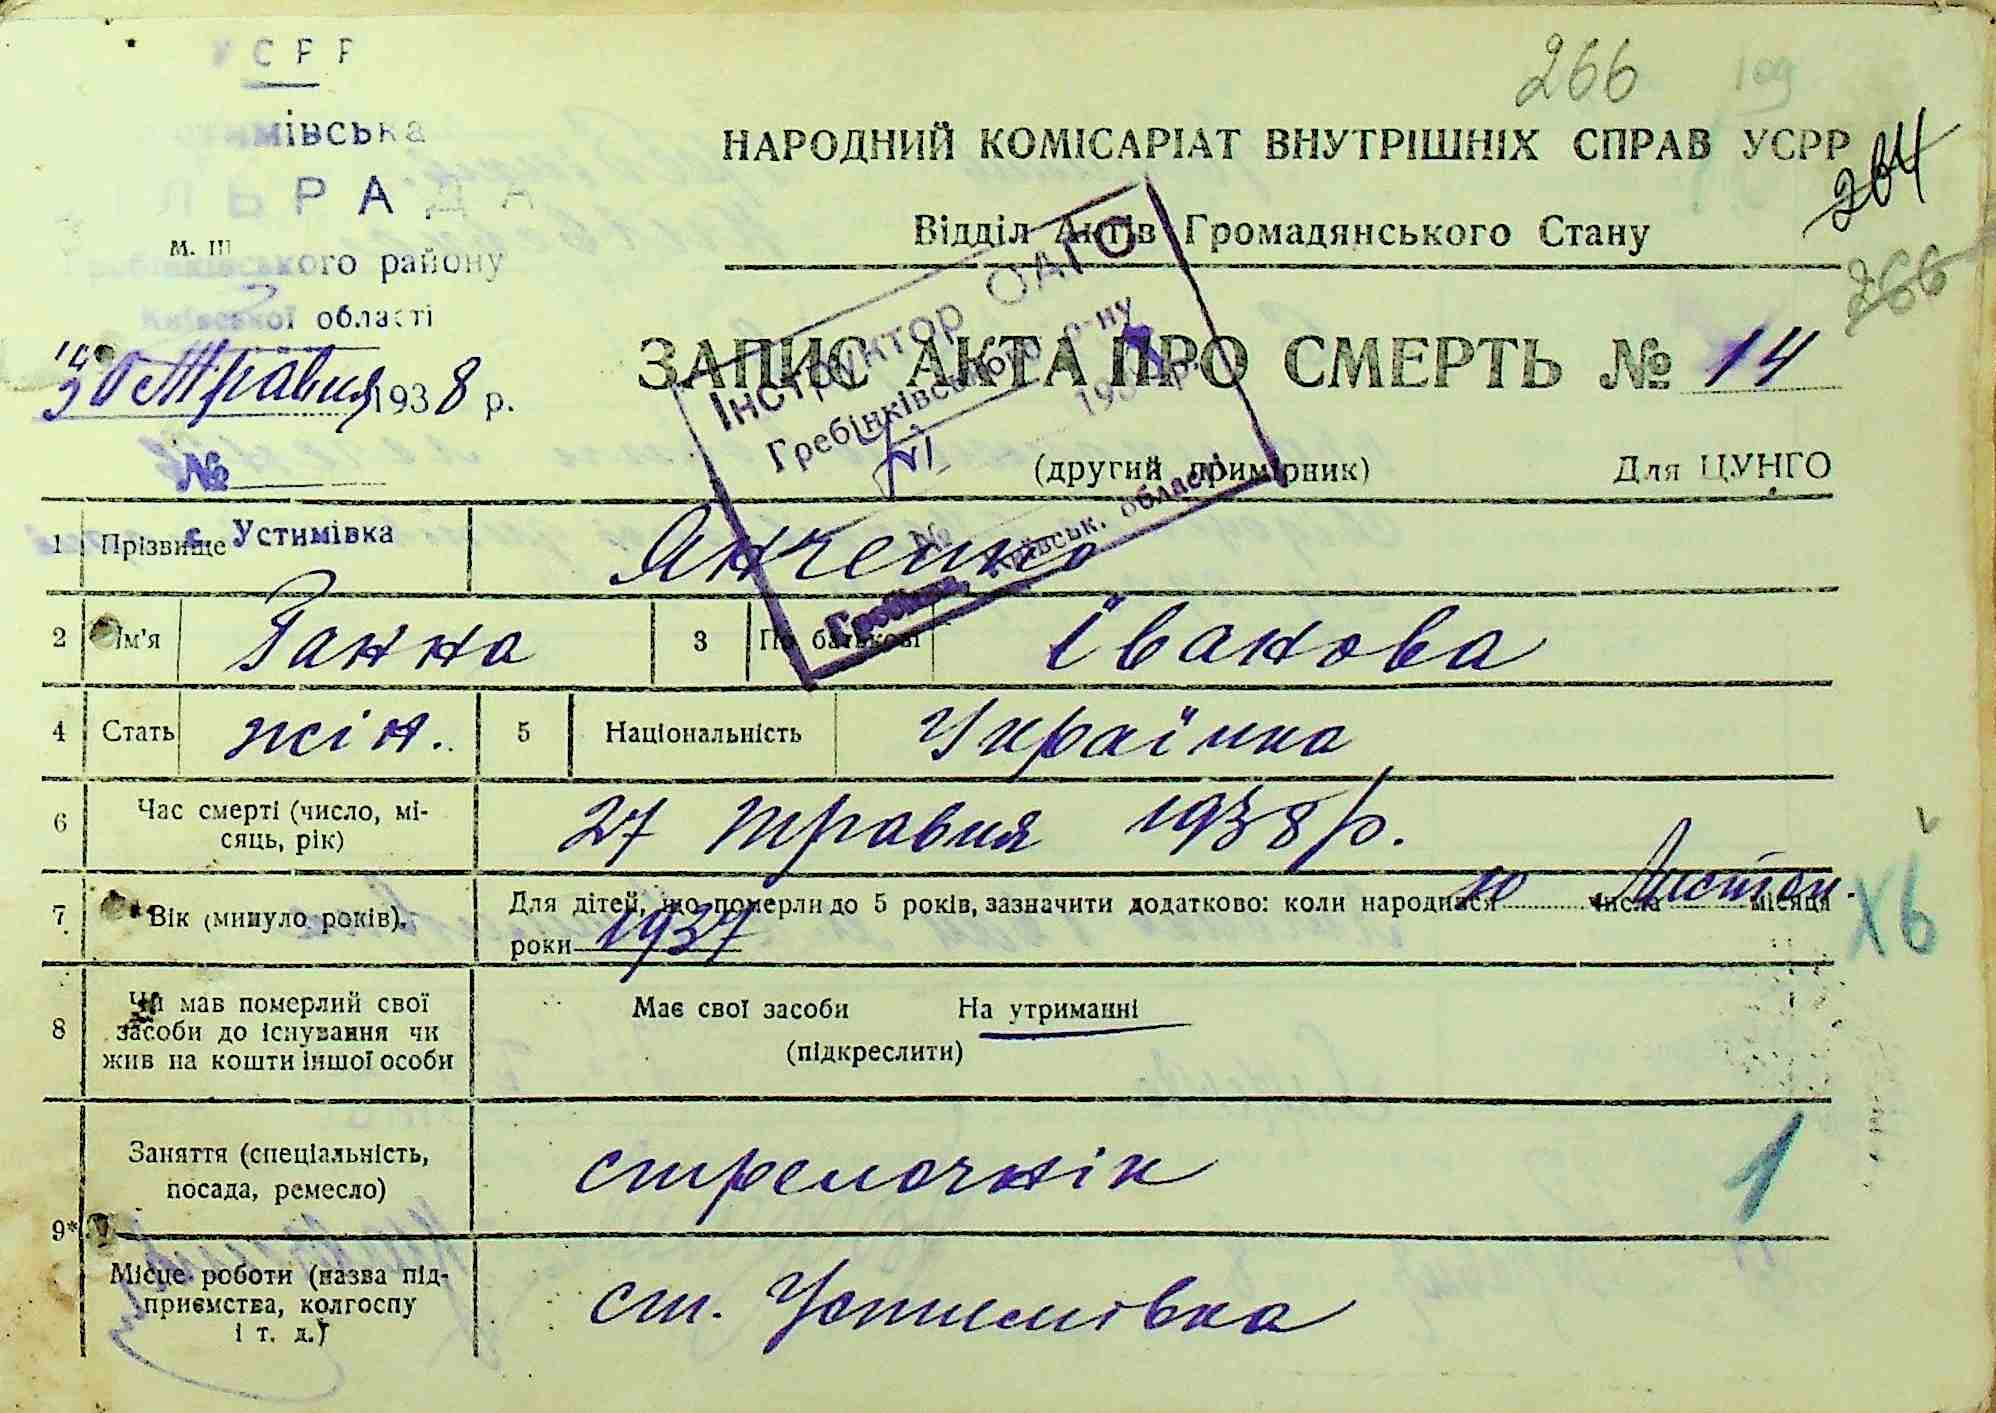 УСРР
266
Устимівська
НАРОДНИЙ КОМІСАРІАТ ВНУТРІШНІХ СПРАВ УСРР
264
СІЛЬРАДА
Відділ Актів Громадянського Стану
М. Ш
Гребінківського району
266
Київської області
30 Травня 1938 р.
ЗАПИС АКТА ПРО СМЕРТЬ № 14
Інструктор ОАГС
Гребінківського р-ну
193 р.
№
Гребінки, Київськ. області
№
(другий примірник) Для ЦУНГО
с. Устимівка
1 Прізвище Янченко
2 Ім'я Ганна 3 По батькові Іванова
4 Стать жін. 5 Національність Українка
6 Час смерті (число, мі-
сяць, рік) 27 травня 1938 р.
7 Вік (минуло років). Для дітей, що померли до 5 років, зазначити додатково: коли народився 10 числа Листоп. місяця
роки 1937
Х6
8 Чи мав померлий свої
засоби до існування чи
жив на кошти іншої особи
Має свої засоби На утриманні
(підкреслити)
9* Заняття (спеціальність,
посада, ремесло) стрелочнік
1
Місце роботи (назва під-
приємства, колгоспу
і т. д.) ст. Устимівка